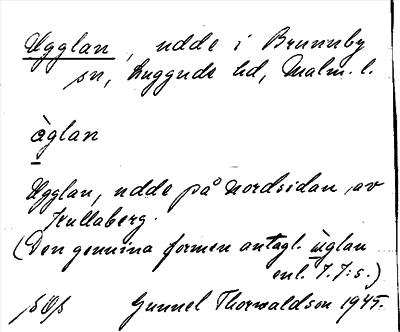 Ugglan, udde i Brunnby
sn, Luggude hd, Malm. l.
ὰglan
Ugglan, udde på Nordsidan av
Kullaberg.
(Den genuina formen antagl. ùglan
enl. I. I:s.)
Gunnel Thorwaldson 1945.